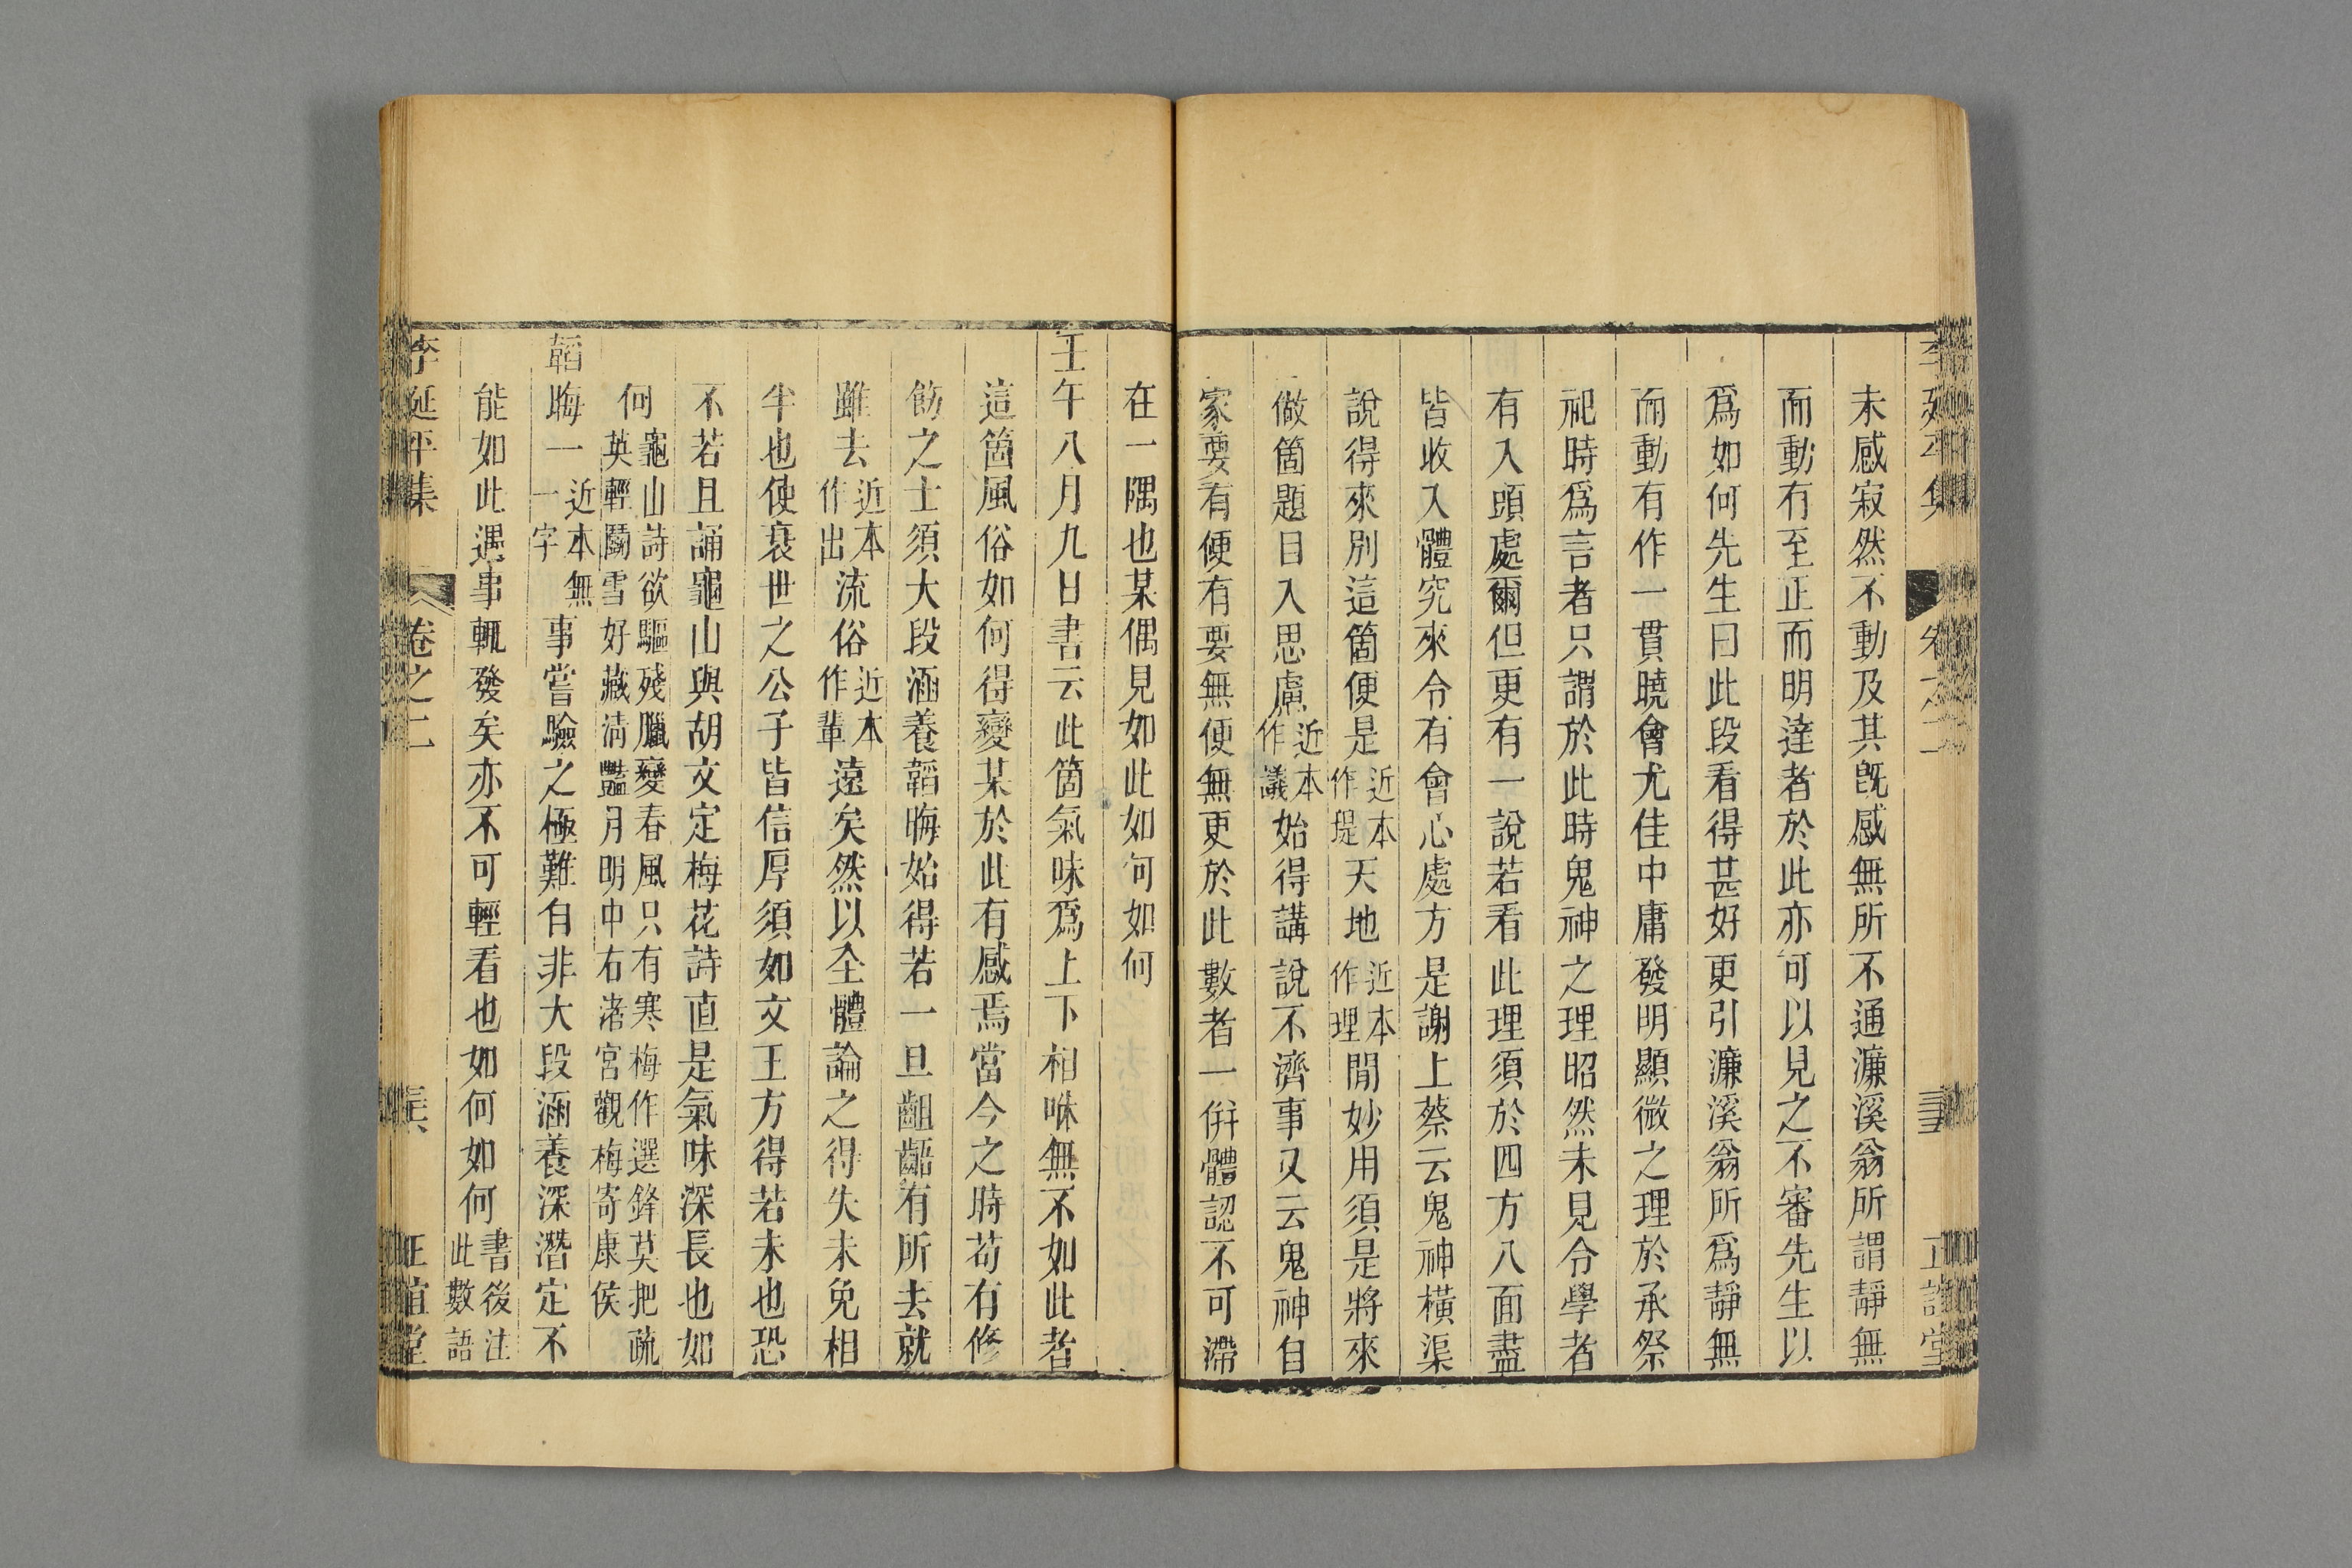 未感寂然不動及其旣感無所不通濂溪翁所謂靜無
而動有至正而明達者於此亦可以見之不審先生以
爲如何先生曰此段看得甚好更引濂溪翁所爲靜無
而動有作一貫曉會尤佳中庸發明顯微之理於承祭
祀時爲言者只謂於此時鬼神之理昭然未見令學者
有入頭處爾但更有一說若看此理須於四方八面盡
皆收入體究來令有會心處方是謝上蔡云鬼神橫渠
說得來別這箇便是近本作現天地近本作理間妙用須是將來
做箇題目入思慮近本作議始得講說不濟事又云鬼神自
家要有便有要無便無更於此數者一併體認不可滯
在一隅也某偶見如此如何如何
壬午八月九日書云此箇氣味爲上下相咻無不如此者
這箇風俗如何得變某於此有感焉當今之時苟有修
飭之士須大段涵養韜晦始得若一旦齟齬有所去就
雖去近本作出流俗近本作輩遠矣然以全體論之得失未免相
半也使衰世之公子皆信厚須如文王方得若未也恐
不若且誦龜山與胡文定梅花詩直是氣味深長也如
何龜山詩欲驅殘臘變春風只有寒梅作選鋒莫把疏英輕鬭雪好藏淸豔月明中右渚宮觀梅寄康侯
韜晦一近本無一字事嘗驗之極難自非大段涵養深潛定不
能如此遇事輒發矣亦不可輕看也如何如何書後注此數語
李延平集
卷之二
正誼堂